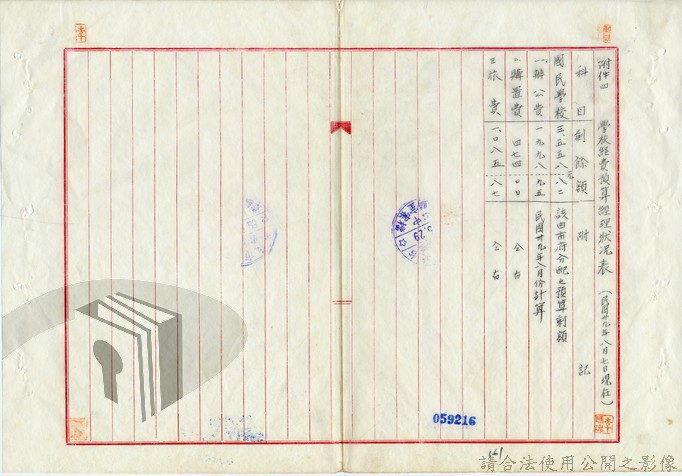 附件四 學校經費預算經理狀況表(民國卅九年八月七日現在)
科目 剩餘額 附記
國民學校 三、五五八 八二元 該由市府分配之預算剩額
一、辦公費 一、九九八 九五 民國卅九年八月份計算
二、購置費 四七四 〇〇 仝右
三、旅費 一、〇八五 八七 仝右
059216
請合法使用公開之影像